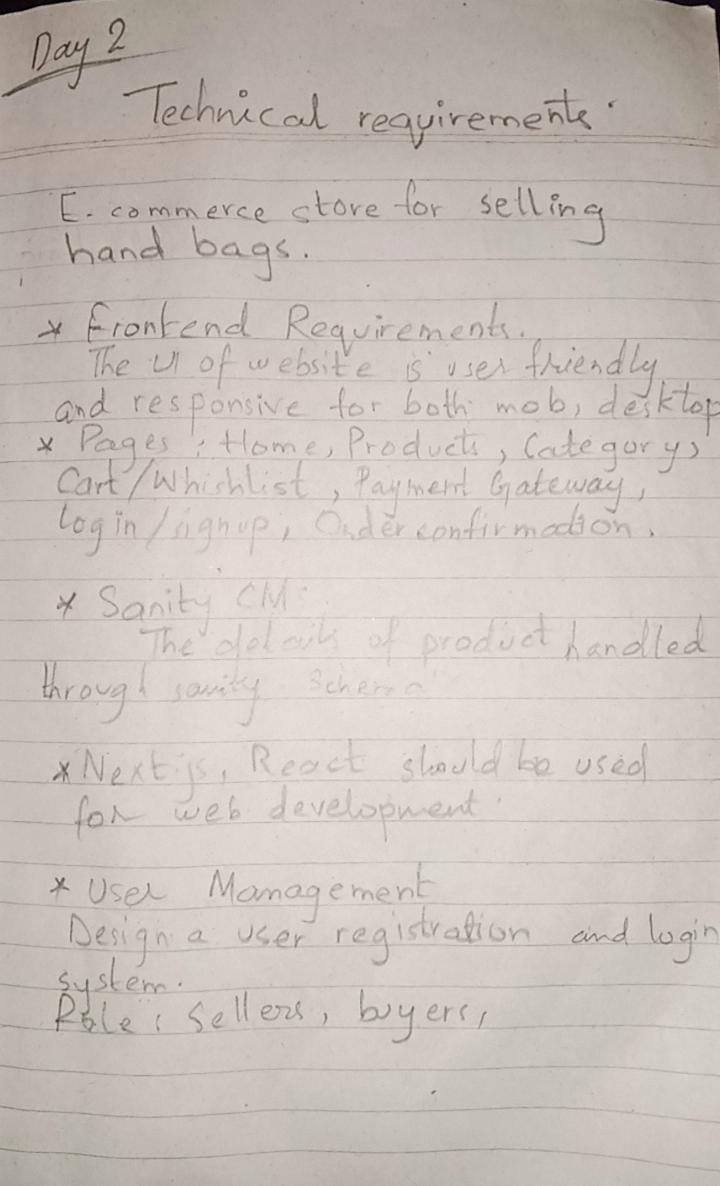 Day 2
Technical requirements.
E-commerce store for selling
hand bags.
* Frontend Requirements.
The UI of website is user friendly
and responsive for both mob, desktop
* Pages : Home, Products, Category,
Cart/Whishlist, Payment Gateway,
Login/signup, Order confirmation.
* Sanity CM:
The details of product handled
through sanity schema
* Next js, React should be used
for web development.
* User Management
Design a user registration and login
system.
Role : Sellers, buyers,